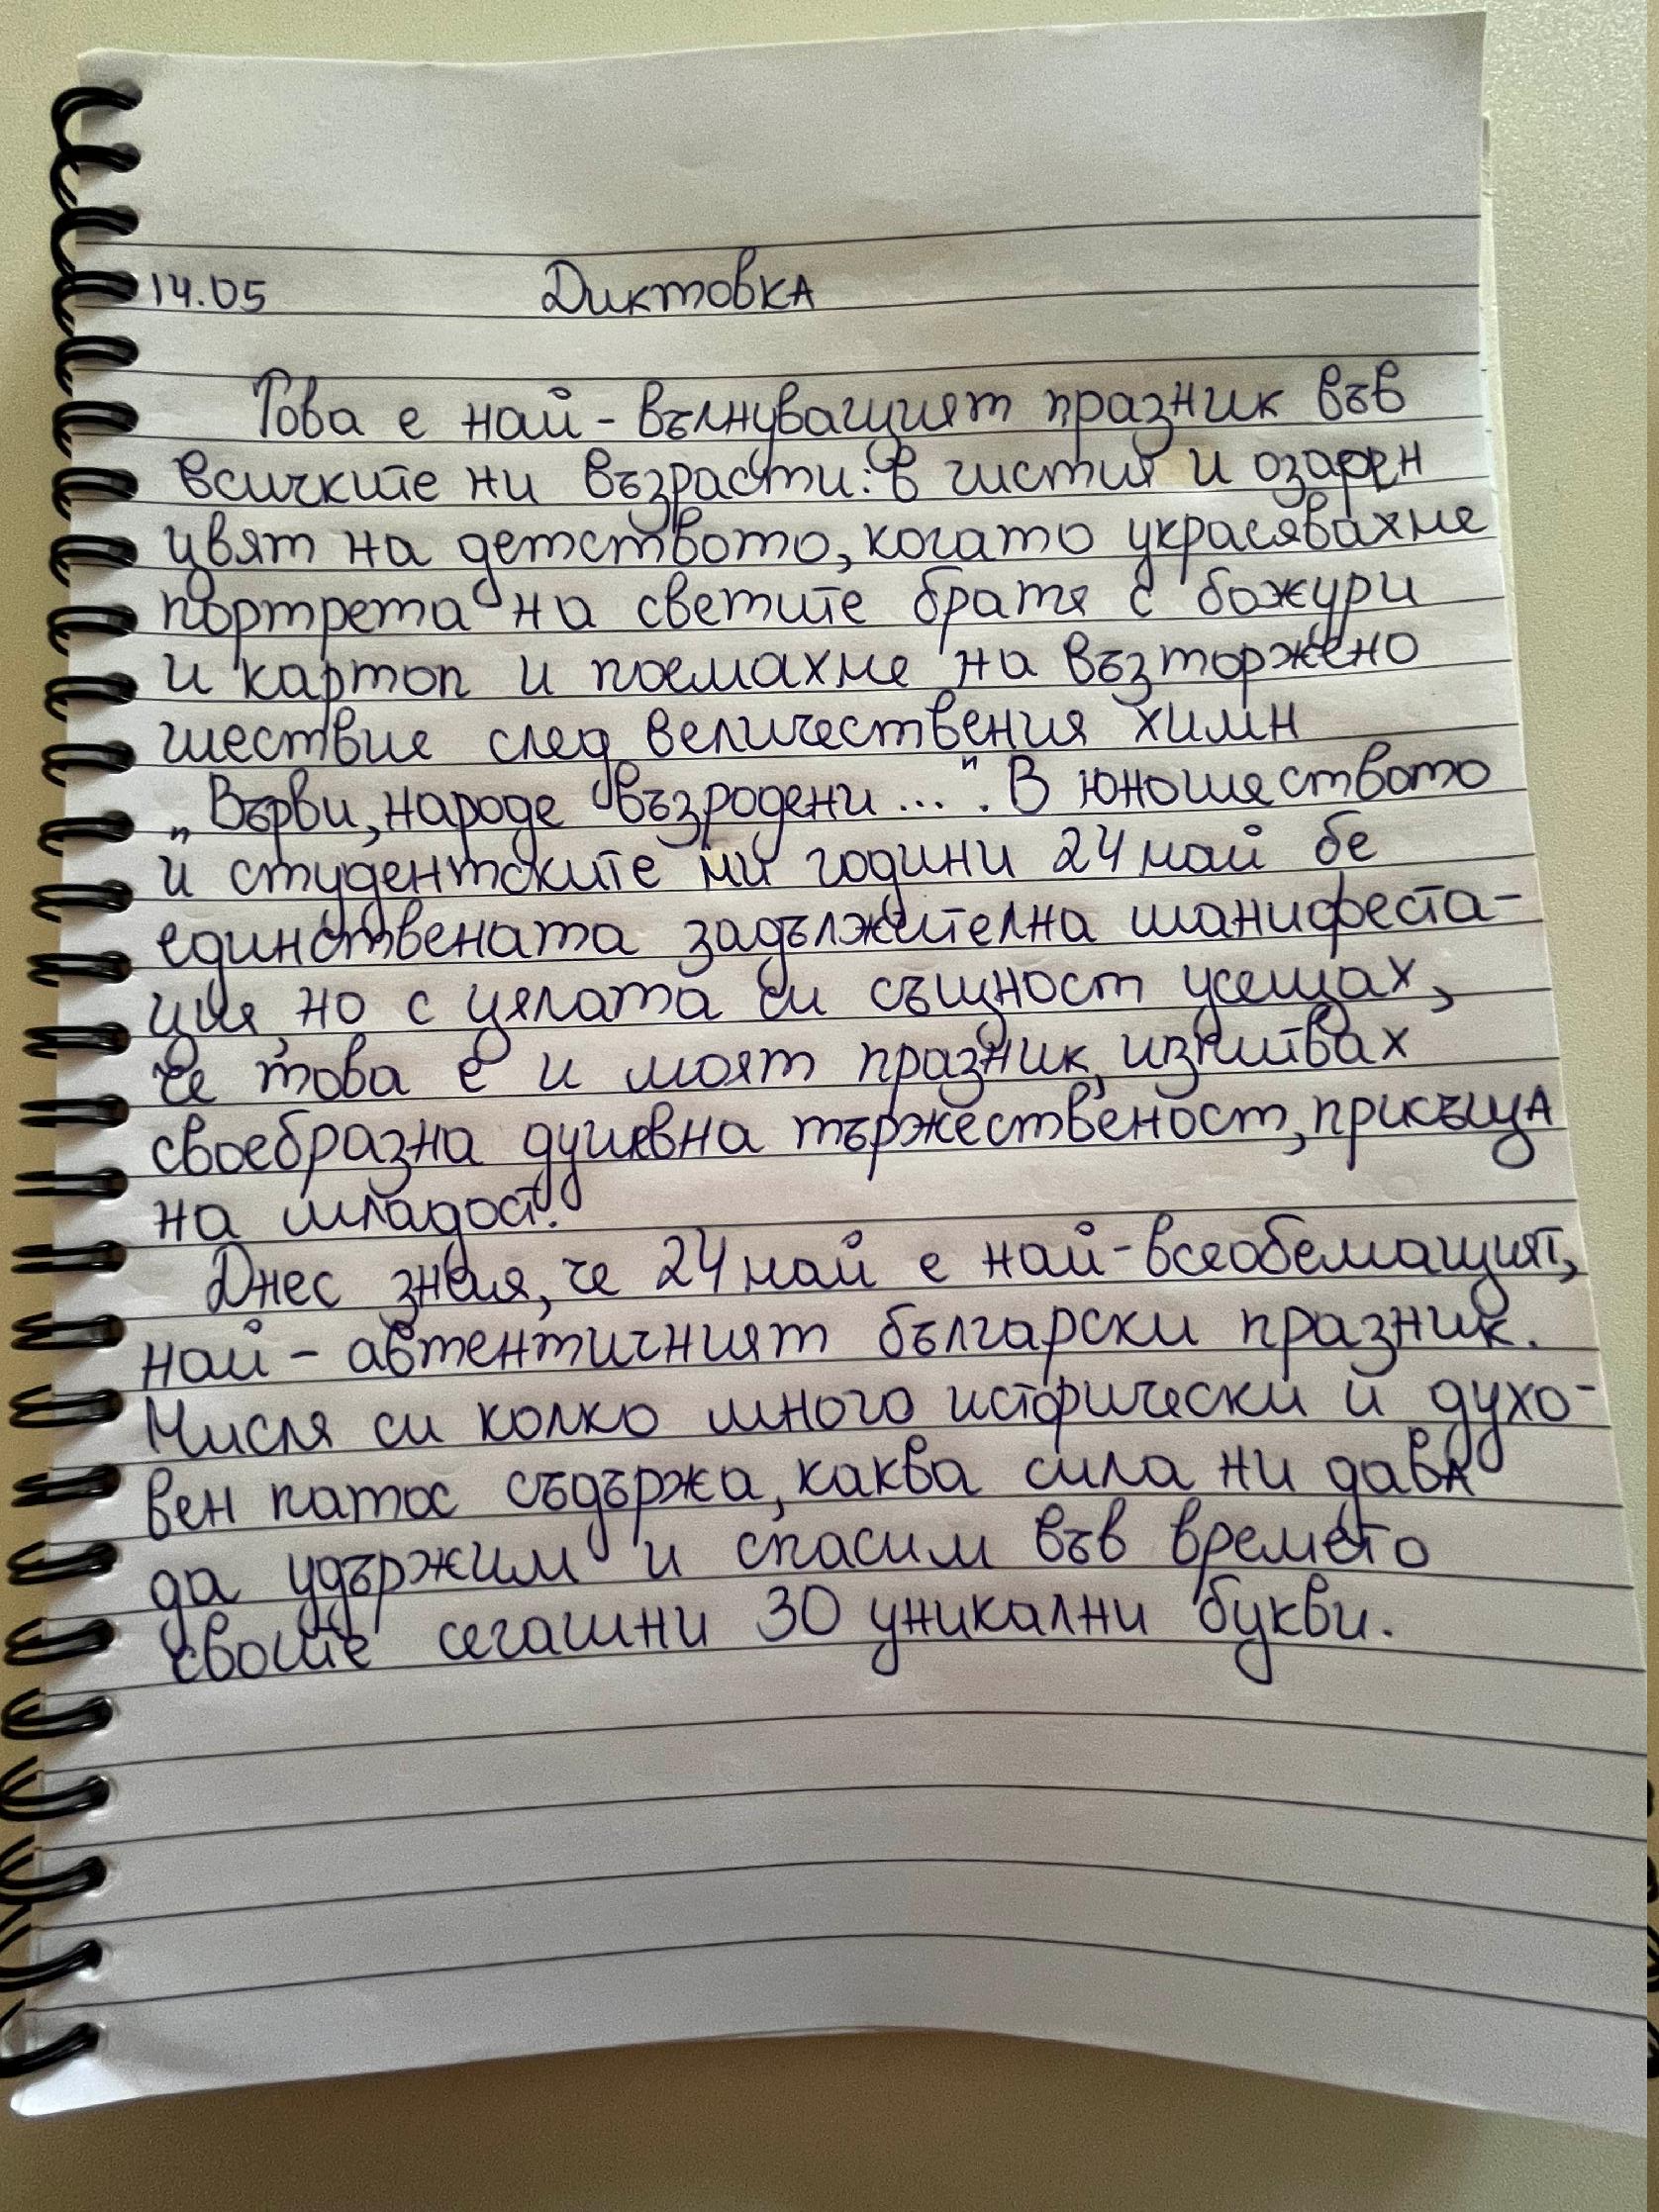 14.05 Диктовка
Това е най-вълнуващият празник във
всичките ни възрасти: в чистия и озарен
цвят на детството, когато украсявахме
портрета на светите братя с божури
и картоп и поемахме на възторжено
шествие след величествения химн
„Върви, народе възродени...". В юношеството
и студентските ми години 24 май бе
единствената задължителна манифеста-
ция, но с цялата си същност усещах,
че това е и моят празник, изпитвах
своебразна душевна тържественост, присъща
на младост.
Днес зная, че 24 май е най-всеобемащият,
най-автентичният български празник.
Мисля си колко много исторически и духо-
вен патос съдържа, каква сила ни дава
да удържим и спасим във времето
своите сегашни 30 уникални букви.